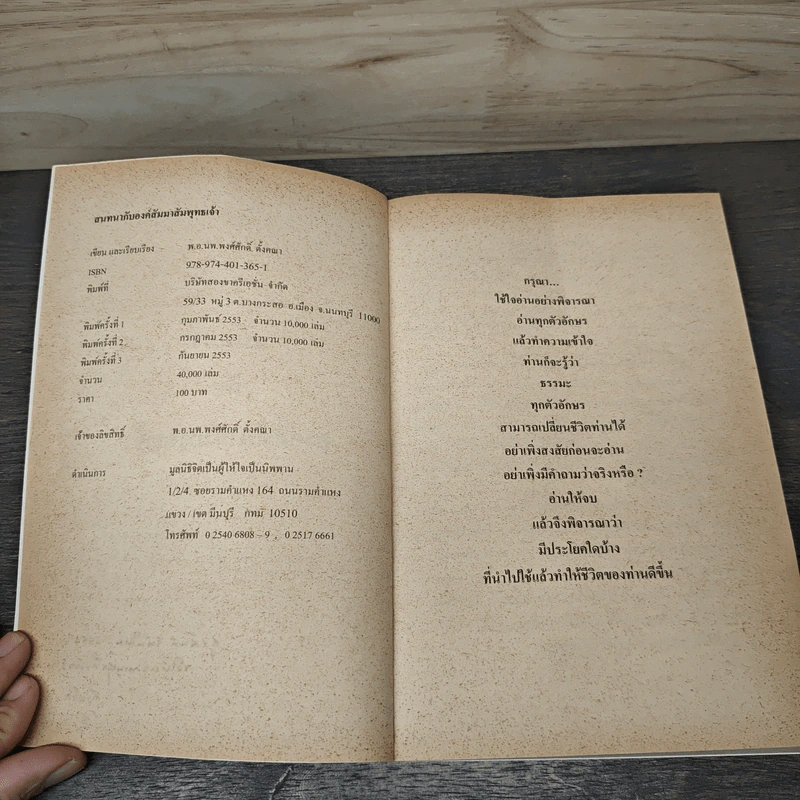 สนทนากับองค์สัมมาสัมพุทธเจ้า
เขียน และเรียบเรียง - พ.อ.นพ.พงศ์ศักดิ์ ตั้งคณา
ISBN 978-974-401-365-1
พิมพ์ที่ บริษัทสองขาครีเอชั่น จำกัด
59/33 หมู่ 3 ต.บางกระสอ อ.เมือง จ.นนทบุรี 11000
พิมพ์ครั้งที่ 1 กุมภาพันธ์ 2553 จำนวน 10,000 เล่ม
พิมพ์ครั้งที่ 2 กรกฎาคม 2553 จำนวน 10,000 เล่ม
พิมพ์ครั้งที่ 3 กันยายน 2553
จำนวน 40,000 เล่ม
ราคา 100 บาท
เจ้าของลิขสิทธิ์ พ.อ.นพ.พงศ์ศักดิ์ ตั้งคณา
ดำเนินการ มูลนิธิจิตเป็นผู้ให้ใจเป็นนิพพาน
1/2/4 ซอยรามคำแหง 164 ถนนรามคำแหง
แขวง / เขต มีนบุรี กทม 10510
โทรศัพท์ 0 2540 6808 – 9 , 0 2517 6661
กรุณา...
ใช้ใจอ่านอย่างพิจารณา
อ่านทุกตัวอักษร
แล้วทำความเข้าใจ
ท่านก็จะรู้ว่า
ธรรมะ
ทุกตัวอักษร
สามารถเปลี่ยนชีวิตท่านได้
อย่าเพิ่งสงสัยก่อนจะอ่าน
อย่าเพิ่งมีคำถามว่าจริงหรือ ?
อ่านให้จบ
แล้วจึงพิจารณาว่า
มีประโยคใดบ้าง
ที่นำไปใช้แล้วทำให้ชีวิตของท่านดีขึ้น